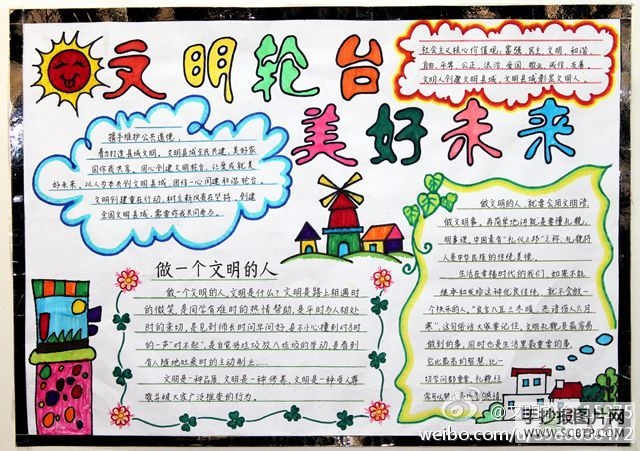 文明轮台
美好未来
社会主义核心价值观:富强、民主、文明、和谐、
自由、平等、公正、法治、爱国、敬业、诚信、友善。
文明人创建文明县城,文明县城彰显文明人。
携手维护公共道德,
着力打造县城文明。文明县城全民共建,美好家
园你我共享。用心创建文明轮台,让爱成就美
好未来。以人为本共创文明县城,团结一心同建和谐轮台。
文明创建重在行动,树立新风贵在坚持,创建
全国文明县城,需要你我共同努力。
做一个文明的人
做一个文明的人,文明是什么?文明是路上相遇时
的微笑,是同学有难时的热情帮助,是平时与人相处
时的亲切,是见到师长时问早问好,是不小心撞到对方时
的一声"对不起",是自觉将垃圾放入垃圾的举动,是看到
有人随地吐痰时的主动制止……
文明是一种品质,文明是一种修养,文明是一种受人尊
敬并被大家广泛推崇的行为。
做文明的人,就要会用文明语,
做文明事。再简单地讲就是要懂礼貌,
明事理。中国素有"礼仪之邦"之称,礼貌待
人是中华民族的传统美德。
生活在幸福时代的我们,如果不能
继承和发扬这种优良传统,就不会做一
个快乐的人。"良言入耳三冬暖,恶语伤人六月
寒",这句俗话大家要记住。文明礼貌是最容易
做到的事,同时也是生活里最重要的事,
它比最高的智慧,比一
切学问都重要。礼貌经
常可以替
手抄报图片网
WWW.SCBTP.COM